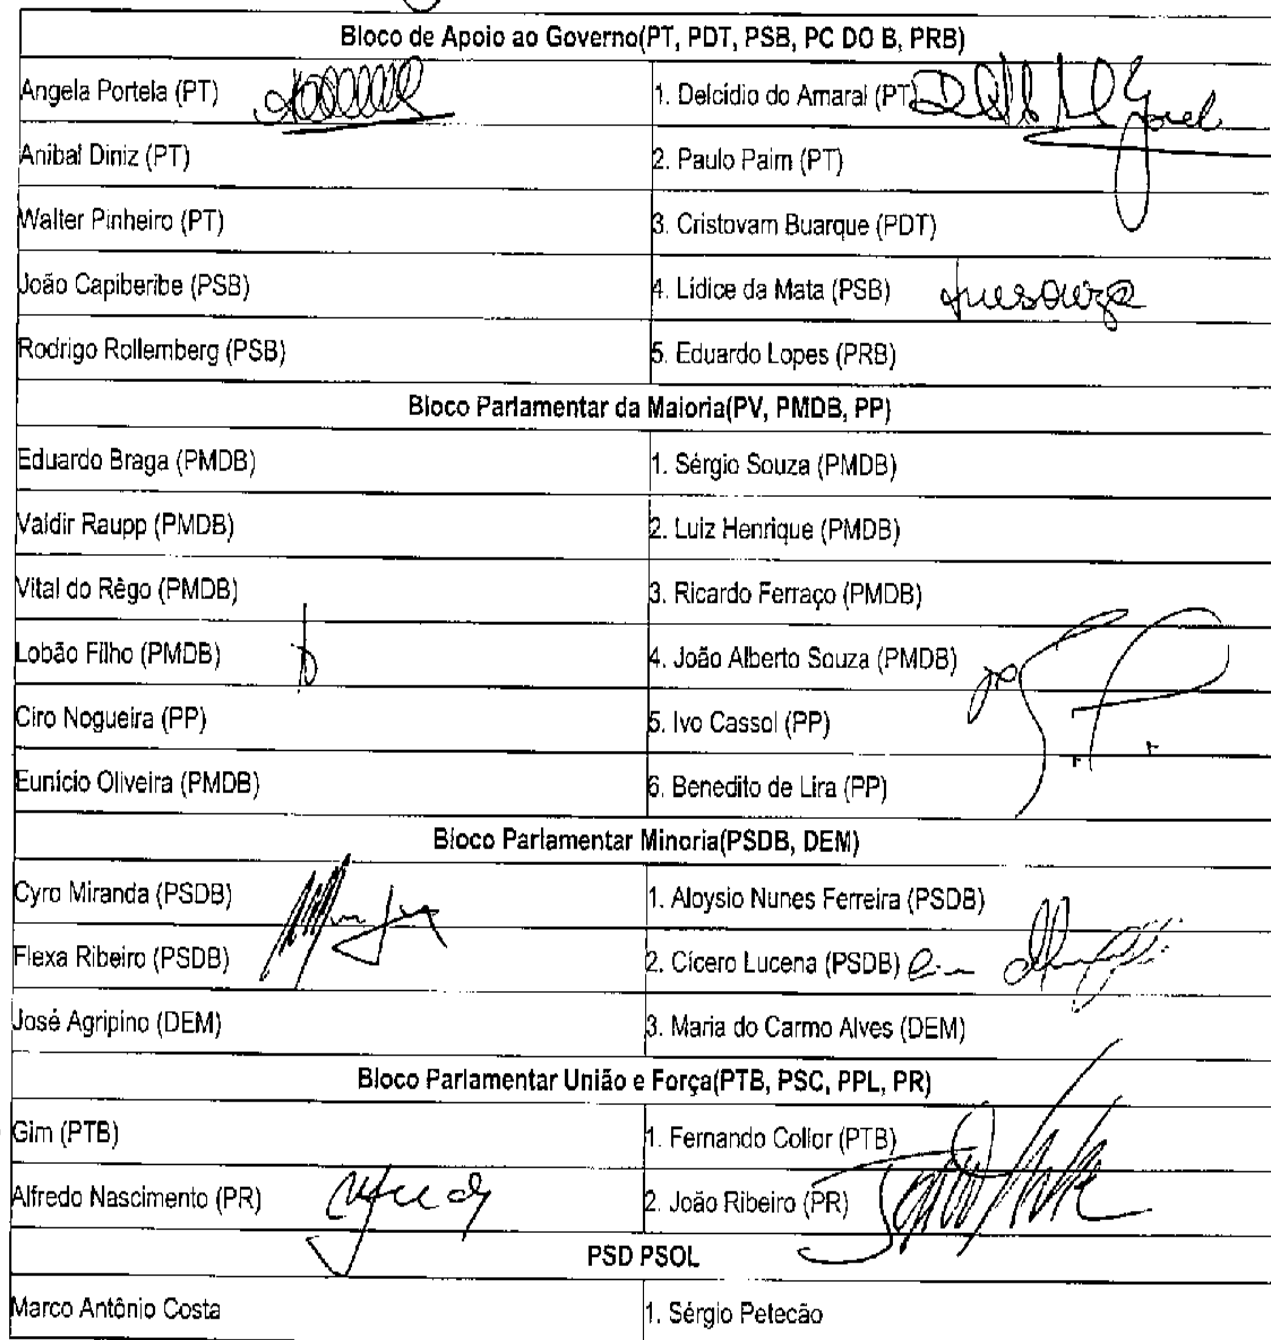 Bloco de Apoio ao Governo(PT, PDT, PSB, PC DO B, PRB)
Angela Portela (PT) 1. Delcidio do Amaral (PT)
Anibal Diniz (PT) 2. Paulo Paim (PT)
Walter Pinheiro (PT) 3. Cristovam Buarque (PDT)
João Capiberibe (PSB) 4. Lídice da Mata (PSB)
Rodrigo Rollemberg (PSB) 5. Eduardo Lopes (PRB)
Bloco Parlamentar da Maioria(PV, PMDB, PP)
Eduardo Braga (PMDB) 1. Sérgio Souza (PMDB)
Valdir Raupp (PMDB) 2. Luiz Henrique (PMDB)
Vital do Rêgo (PMDB) 3. Ricardo Ferraço (PMDB)
Lobão Filho (PMDB) 4. João Alberto Souza (PMDB)
Ciro Nogueira (PP) 5. Ivo Cassol (PP)
Eunício Oliveira (PMDB) 6. Benedito de Lira (PP)
Bloco Parlamentar Minoria(PSDB, DEM)
Cyro Miranda (PSDB) 1. Aloysio Nunes Ferreira (PSDB)
Flexa Ribeiro (PSDB) 2. Cícero Lucena (PSDB)
José Agripino (DEM) 3. Maria do Carmo Alves (DEM)
Bloco Parlamentar União e Força(PTB, PSC, PPL, PR)
Gim (PTB) 1. Fernando Collor (PTB)
Alfredo Nascimento (PR) 2. João Ribeiro (PR)
PSD PSOL
Marco Antônio Costa 1. Sérgio Petecão